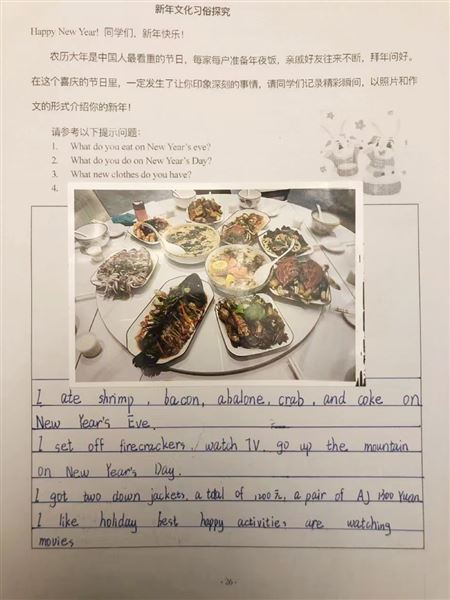 新年文化习俗探究
Happy New Year! 同学们，新年快乐！
农历大年是中国人最看重的节日，每家每户准备年夜饭，亲戚好友往来不断，拜年问好。
在这个喜庆的节日里，一定发生了让你印象深刻的事情，请同学们记录精彩瞬间，以照片和作
文的形式介绍你的新年！
请参考以下提示问题：
1. What do you eat on New Year's eve?
2. What do you do on New Year's Day?
3. What new clothes do you have?
4.
I ate shrimp, bacon, abalone, crab, and coke on
New Year's Eve.
I set off firecrackers, watch TV, go up the mountain
on New Year's Day.
I got two down jackets, a total of 1200元, a pair of AJ 1300 Yuan
I like holiday best happy activities are watching
movies
· 26 ·